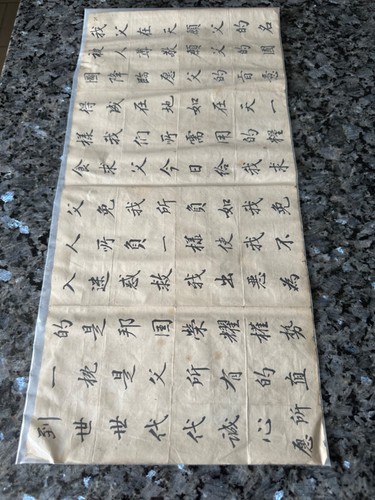 我父在天願父的名
被人尊敬願父的國
國降臨愿父的旨意
得成在地如在天一
樣我們所需用的糧
食求父今日給我求
父免我所負如我免
人所負一樣使我不
入迷惑救我出惡為
的是邦国榮耀權勢
一概是父所有的直
到世世代代誠心所愿